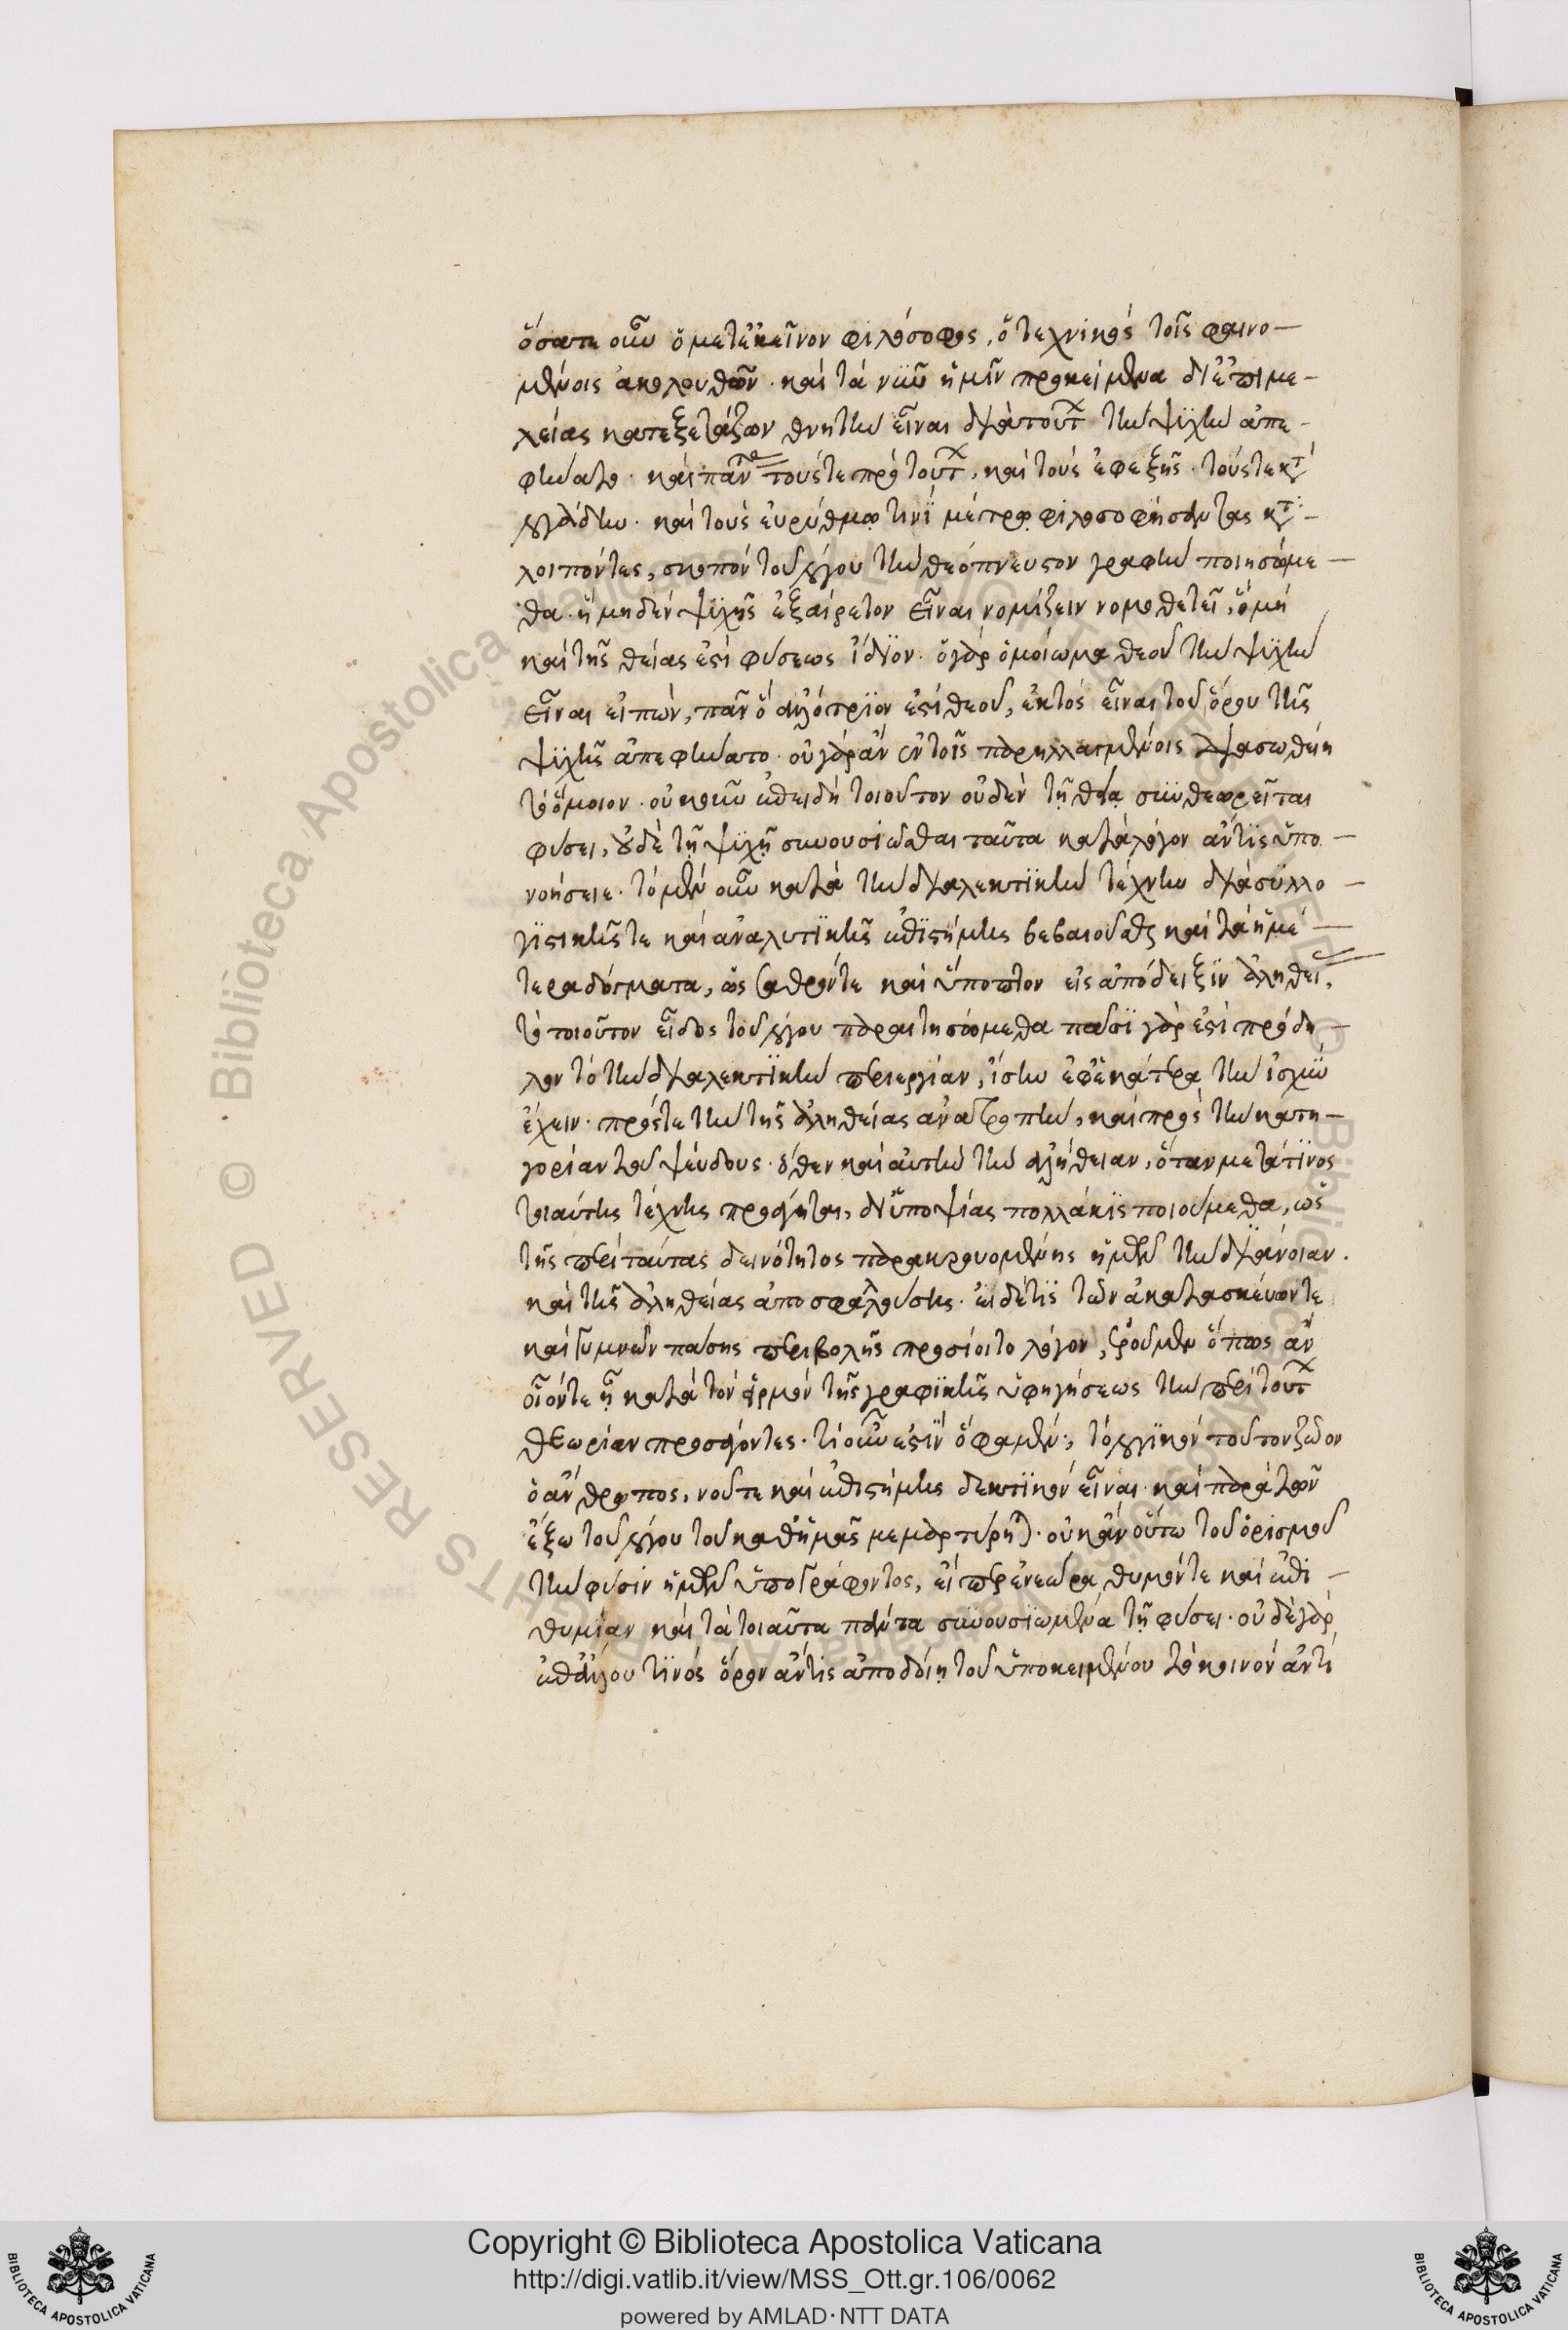 ὅσατε οὖν ὁ μετ' ἐκεῖνον φιλόσοφος, ὁ τεχνικός τοῖς φαινο-
μένοις ἀκολουθῶν. καὶ τὰ νῦν ἡμῖν προκείμενα δι' ἐπιμε-
λείας κατεξετάζων θνητὴν εἶναι διὰ τούτ τὴν ψυχὴν ἀπε-
φήνατο. καὶ πάντα τούς τε πρὸ τούτ, καὶ τοὺς ἐφεξῆς. τούς τε κτ
λογάδην. καὶ τοὺς εὐρύθμῳ τινὶ μέτρῳ φιλοσοφήσαντας κτ
λοιπόντες, σκοπὸν τοῦ λόγου τὴν θεόπνευστον γραφὴν ποιησόμε-
θα. ἣ μηδὲν ψυχῆς ἐξαίρετον εἶναι νομίζειν νομοθετεῖ, ὃ μὴ
καὶ τῆς θείας ἐστὶ φύσεως ἴδιον. ὁ γὰρ ὁμοίωμα θεοῦ τὴν ψυχὴν
εἶναι εἰπών, πᾶν ὃ ἀλλότριον ἐστὶ θεοῦ, ἐκτὸς εἶναι τοῦ ὅρου τῆς
ψυχῆς ἀπεφήνατο. οὐ γὰρ ἂν ἐν τοῖς παρηλλαγμένοις διασωθείη
τὸ ὅμοιον. οὐκοῦν ἐπειδὴ τοιοῦτον οὐδὲν τῇ θείᾳ συνθεωρεῖται
φύσει, οὐδὲ τῇ ψυχῇ συνουσιῶσθαι ταῦτα κατὰ λόγον ἄν τις ὑπο-
νοήσειε. τὸ μὲν οὖν κατὰ τὴν διαλεκτικὴν τέχνην διὰ συλλο-
γιστικῆς τε καὶ ἀναλυτικῆς ἐπιστήμης βεβαιοῦσθαι καὶ τὰ ἡμέ-
τερα δόγματα, ὡς σαθρόν τε καὶ ὕποπτον εἰς ἀπόδειξιν ἀληθεί,
τὸ τοιοῦτον εἶδος τοῦ λόγου παραιτησόμεθα πᾶσι γάρ ἐστι πρόδη-
λον τὸ τὴν διαλεκτικὴν περιεργίαν, ἴσην ἐφ' ἑκάτερα τὴν ἰσχὺν
ἔχειν. πρός τε τὴν τῆς ἀληθείας ἀνατροπὴν, καὶ πρὸς τὴν κατη-
γορίαν τοῦ ψεύδους. ὅθεν καὶ αὐτὴν τὴν ἀλήθειαν, ὅταν μετά τινος
τοιαύτης τέχνης προάγηται, δι' ὑποψίας πολλάκις ποιούμεθα, ὡς
τῆς περὶ ταύτας δεινότητος παρακρουομένης ἡμῶν τὴν διάνοιαν.
καὶ τῆς ἀληθείας ἀποσφαλλούσης. εἰ δέ τις τῶν ἀκατασκεύων τε
καὶ γυμνῶν πάσης περιβολῆς προσίοιτο λόγον, ἐροῦμεν ὅπως ἂν
οἷόν τε ᾖ κατὰ τὸν εἱρμὸν τῆς γραφικῆς ὑφηγήσεως τὴν περὶ τούτ
θεωρίαν προσάγοντες. τί οὖν ἐστιν ὅ φαμεν:, τὸ λογικὸν τοῦτον ζῶον
ὁ ἄνθρωπος, νοῦ τε καὶ ἐπιστήμης δεκτικὸν εἶναι. καὶ παρὰ τῶν
ἔξω τοῦ λόγου τοῦ καθ' ἡμᾶς μεμαρτύρηται. οὐκ ἂν οὕτω τοῦ ὁρισμοῦ
τὴν φύσιν ἡμῶν ὑπογράφοντος, εἴπερ ἐνεώρα θυμόν τε καὶ ἐπι-
θυμίαν καὶ τὰ τοιαῦτα πάντα συνουσιωμένα τῇ φύσει. οὐδὲ γὰρ
ἐπ' ἄλλου τινὸς ὅρον ἄν τις ἀποδοίη τοῦ ὑποκειμένου τὸ κοινὸν ἀντὶ
Copyright © Biblioteca Apostolica Vaticana
http://digi.vatlib.it/view/MSS_Ott.gr.106/0062
powered by AMLAD·NTT DATA
BIBLIOTECA APOSTOLICA VATICANA
BIBLIOTECA APOSTOLICA VATICANA